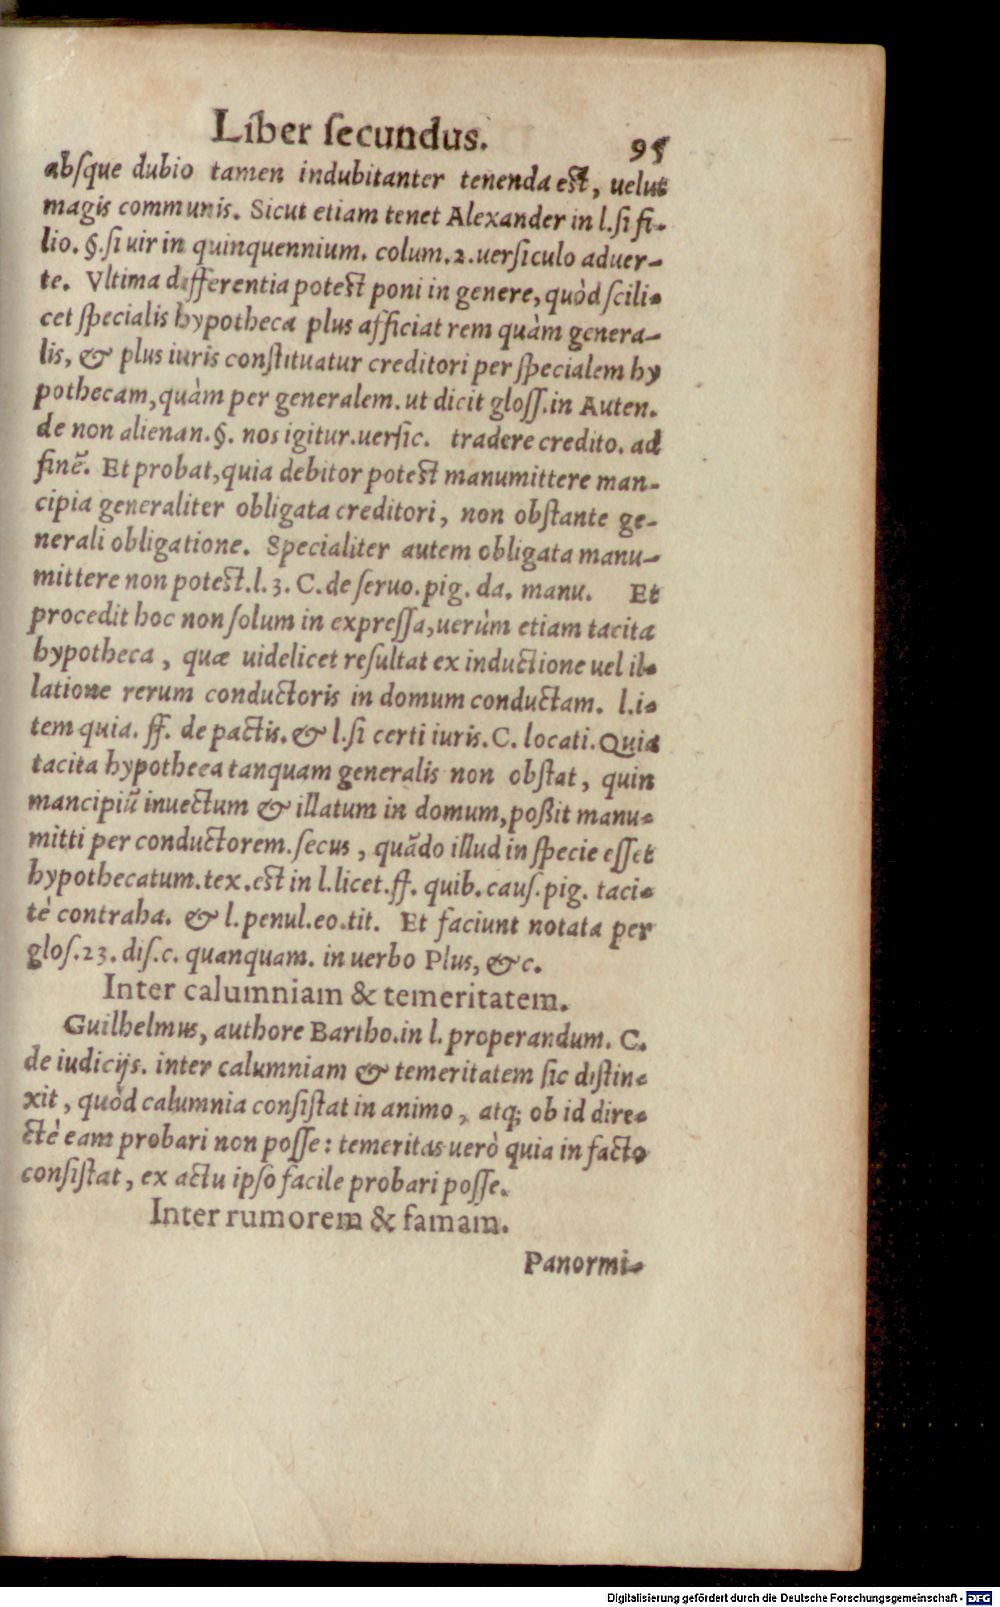 Liber ſecundus. 95
abſque dubio tamen indubitanter tenenda eſt, uelut
magis communis. Sicut etiam tenet Alexander in l.ſi fi-
lio. §.ſi uir in quinquennium. colum.2.uerſiculo aduer-
te. Vltima differentia poteſt poni in genere, quòd ſcili-
cet ſpecialis hypotheca plus afficiat rem quàm genera-
lis, & plus iuris conſtituatur creditori per ſpecialem hy
pothecam, quàm per generalem. ut dicit gloſſ.in Auten.
de non alienan.§. nos igitur.uerſic. tradere credito. ad
finẽ. Et probat, quia debitor poteſt manumittere man-
cipia generaliter obligata creditori, non obſtante ge-
nerali obligatione. Specialiter autem obligata manu-
mittere non poteſt.l.3. C. de ſeruo.pig. da. manu. Et
procedit hoc non ſolum in expreſſa, uerùm etiam tacita
hypotheca, quæ uidelicet reſultat ex inductione uel il-
latione rerum conductoris in domum conductam. l.i-
tem quia. ff. de pactis. & l.ſi certi iuris. C. locati. Quia
tacita hypotheca tanquam generalis non obſtat, quin
mancipiũ inuectum & illatum in domum, poßit manu-
mitti per conductorem. ſecus, quãdo illud in ſpecie eſſet
hypothecatum.tex.eſt in l.licet.ff. quib. cauſ.pig. taci-
tè contraha. & l.penul.eo.tit. Et faciunt notata per
gloſ.23. diſ.c. quanquam. in uerbo Plus, &c.
Inter calumniam & temeritatem.
Guilhelmus, authore Bartho.in l. properandum. C.
de iudicijs. inter calumniam & temeritatem ſic diſtin-
xit, quòd calumnia conſiſtat in animo, atq; ob id dire-
ctè eam probari non poſſe: temeritas uerò quia in facto
conſiſtat, ex actu ipſo facile probari poſſe.
Inter rumorem & famam.
Panormi-
Digitalisierung gefördert durch die Deutsche Forschungsgemeinschaft - DFG